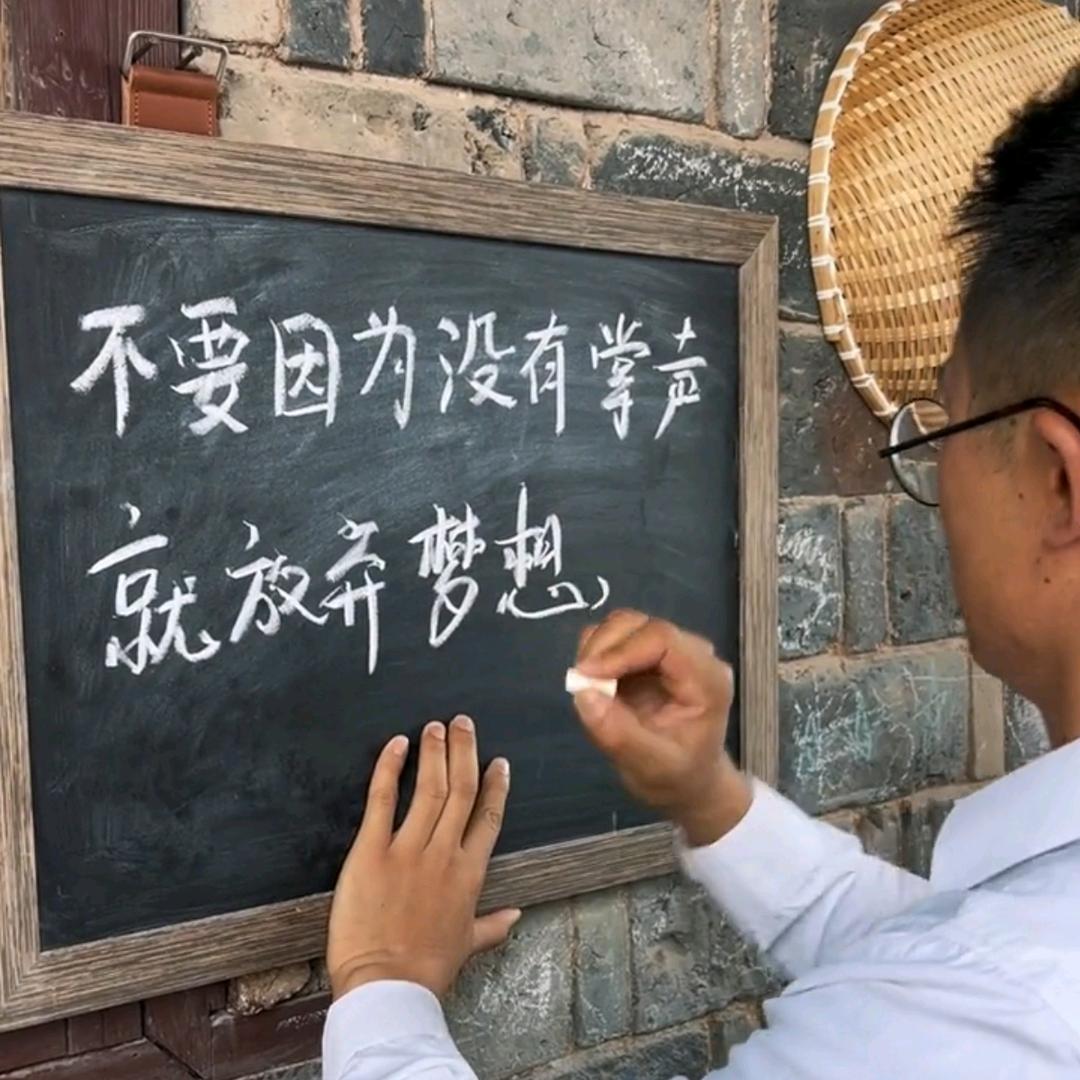 不要因为没有掌声
就放弃梦想